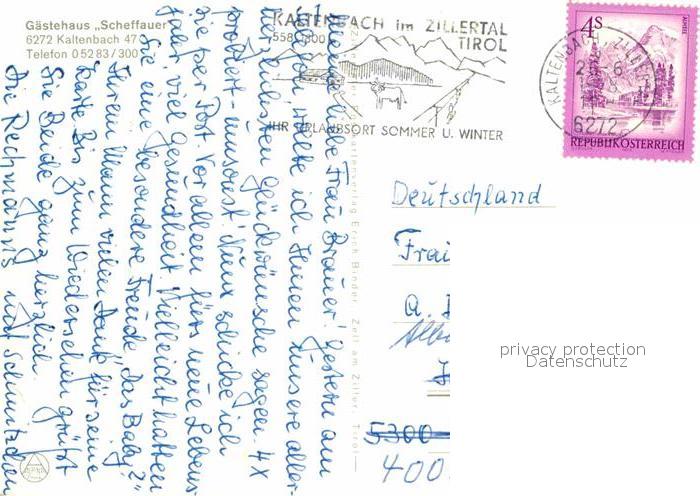 Gästehaus „Scheffauer"
6272 Kaltenbach 47
Telefon 0 52 83 / 300
KALTENBACH im ZILLERTAL
TIROL
558-1300
IHR URLAUBSORT SOMMER U. WINTER
KALTENBACH, ZILLERTAL
6272
4 S
REPUBLIK ÖSTERREICH
Meine liebe Frau Brauer! Gestern am
wollte ich Ihnen unsere aller-
herzlichsten Glückwünsche sagen. 4 x
probiert - umsonst! Nun schicke ich
sie per Post. Vor allem fürs neue Lebens-
jahr viel Gesundheit. Vielleicht hatten
Sie eine besondere Freude, das Baby?"
Ihrem Mann vielen Dank für seine
Karte. Bis zum Wiedersehen grüßt
Sie Beide ganz herzlich
Die Reichmanns und Schnitzchen
Kartenverlag Erich Binder, Zell am Ziller, Tirol
Deutschland
Frau
A.
5300
400
privacy protection
Datenschutz